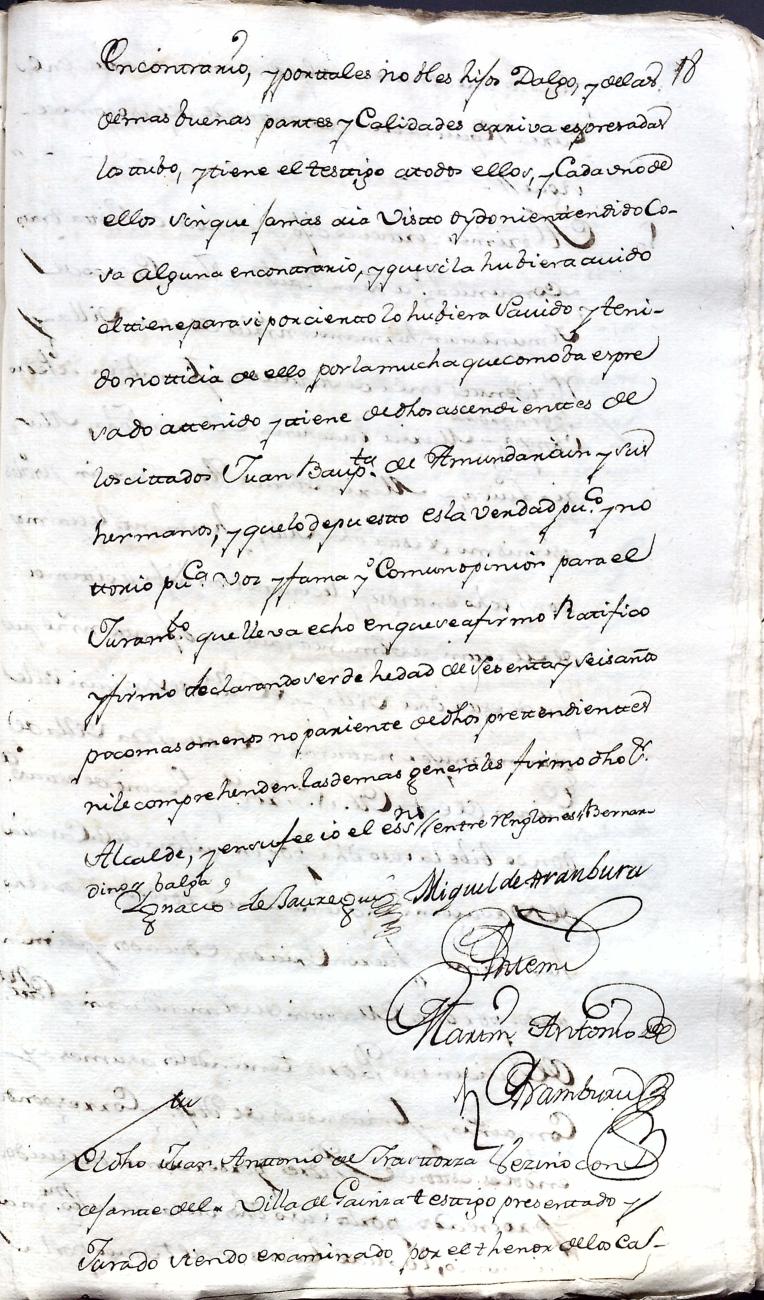 Encontrario, y por ttales nobles hijos Dalgo, y de las 18
demas buenas partes y Calidades arriva espresadas
los ttubo, y tiene el testtigo a todos ellos, y Cada uno de
ellos sin que jamas aia Vistto oydo ni enttendido Co-
sa alguna encontrario, y que si la hubiera avido
el ttiene para si por ciertto lo hubiera Savido y teni-
do notticia de ello por la mucha que como ba espre
sado a ttenido y ttiene de dhos ascendienttes de
los cittados Juan Baupta. de Amundarain y sus
hermanos, y que lo depuestto es la Verdad puco. y no
ttorio puca. Voz y fama y Comun opinion para el
Juramto. que lleva echo en que se afirmo Ratifico
y firmo declarando ser de hedad de sesenta y seis años
poco mas o menos no pariente de dhos prettendienttes
ni le comprehenden las demas generales firmo dho Sr.
Alcalde, y en su fee io el essno // entre rrenglones, Bernar-
dino y balga,
Ignacio de Jauregui Miguel de Aranburu
Antemi
Martin Antonio de
Aramburu
tto
El dho Juan Anttonio de Vezino con
cejante de la Villa de Gainza testtigo presentado y
Jurado siendo examinado por el thenor de los Cas-